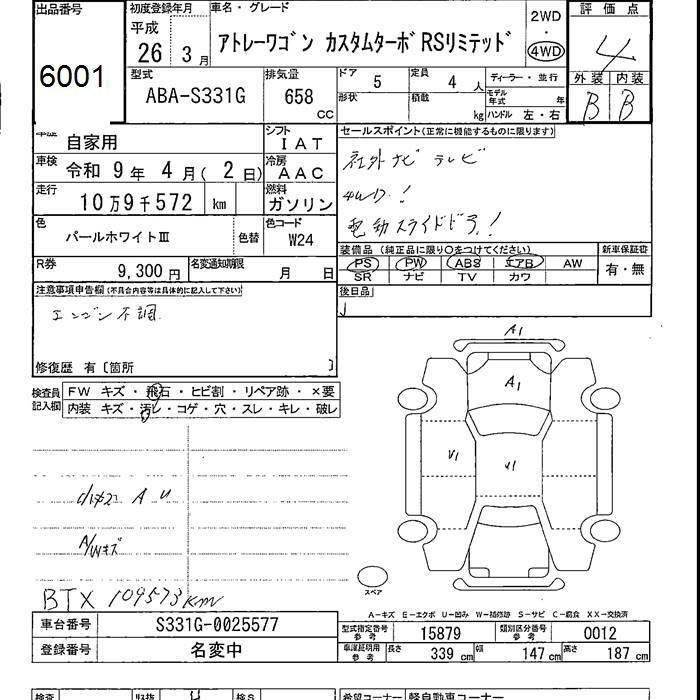 出品番号 初度登録年月 車名・グレード 評価点
平成 2WD
6001 26 3月 アトレーワゴン カスタムターボRSリミテッド 4WD 4
型式 排気量 ドア 5 定員 4人 ディーラー・並行 外装 内装
ABA-S331G 658 cc 形状 積載 kg モデル年式 年 B B
ハンドル 左・右
車歴 自家用 シフト IAT セールスポイント(正常に機能するものに限ります)
車検 令和 9年 4月(2日) 冷房 AAC 社外ナビ テレビ
走行 10万9千572 km 燃料 ガソリン 4WD.!
色 パールホワイトⅢ 色替 色コード W24 電動スライドドラ!
装備品 (純正品に限り○をつけてください) 新車保証書
R券 9,300円 名変通知期限 月 日 PS PW ABS エアB AW 有・無
SR ナビ TV カワ
注意事項申告欄(不具合内容等は具体的に記入して下さい) 後日品
エンジン不調
修復歴 有〔箇所 〕
検査員記入欄 FW キズ・飛石・ヒビ割・リペア跡・×要
内装 キズ・汚レ・コゲ・穴・スレ・キレ・破レ
A1
A1
V1 V1
A U
A/Wキズ
スペア
BTX 109573km
A-キズ E-エクボ U-凹み W-補修跡 S-サビ C-腐食 XX-交換済
車台番号 S331G-0025577 型式指定番号参考 15879 類別区分番号参考 0012
登録番号 名変中 車庫証明用参考 長さ 339cm 幅 147cm 高さ 187cm
検査 検S 希望コーナー 軽自動車コーナー